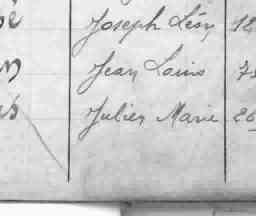 Joseph Léon 12
Jean Louis 7
Julien Marie 26